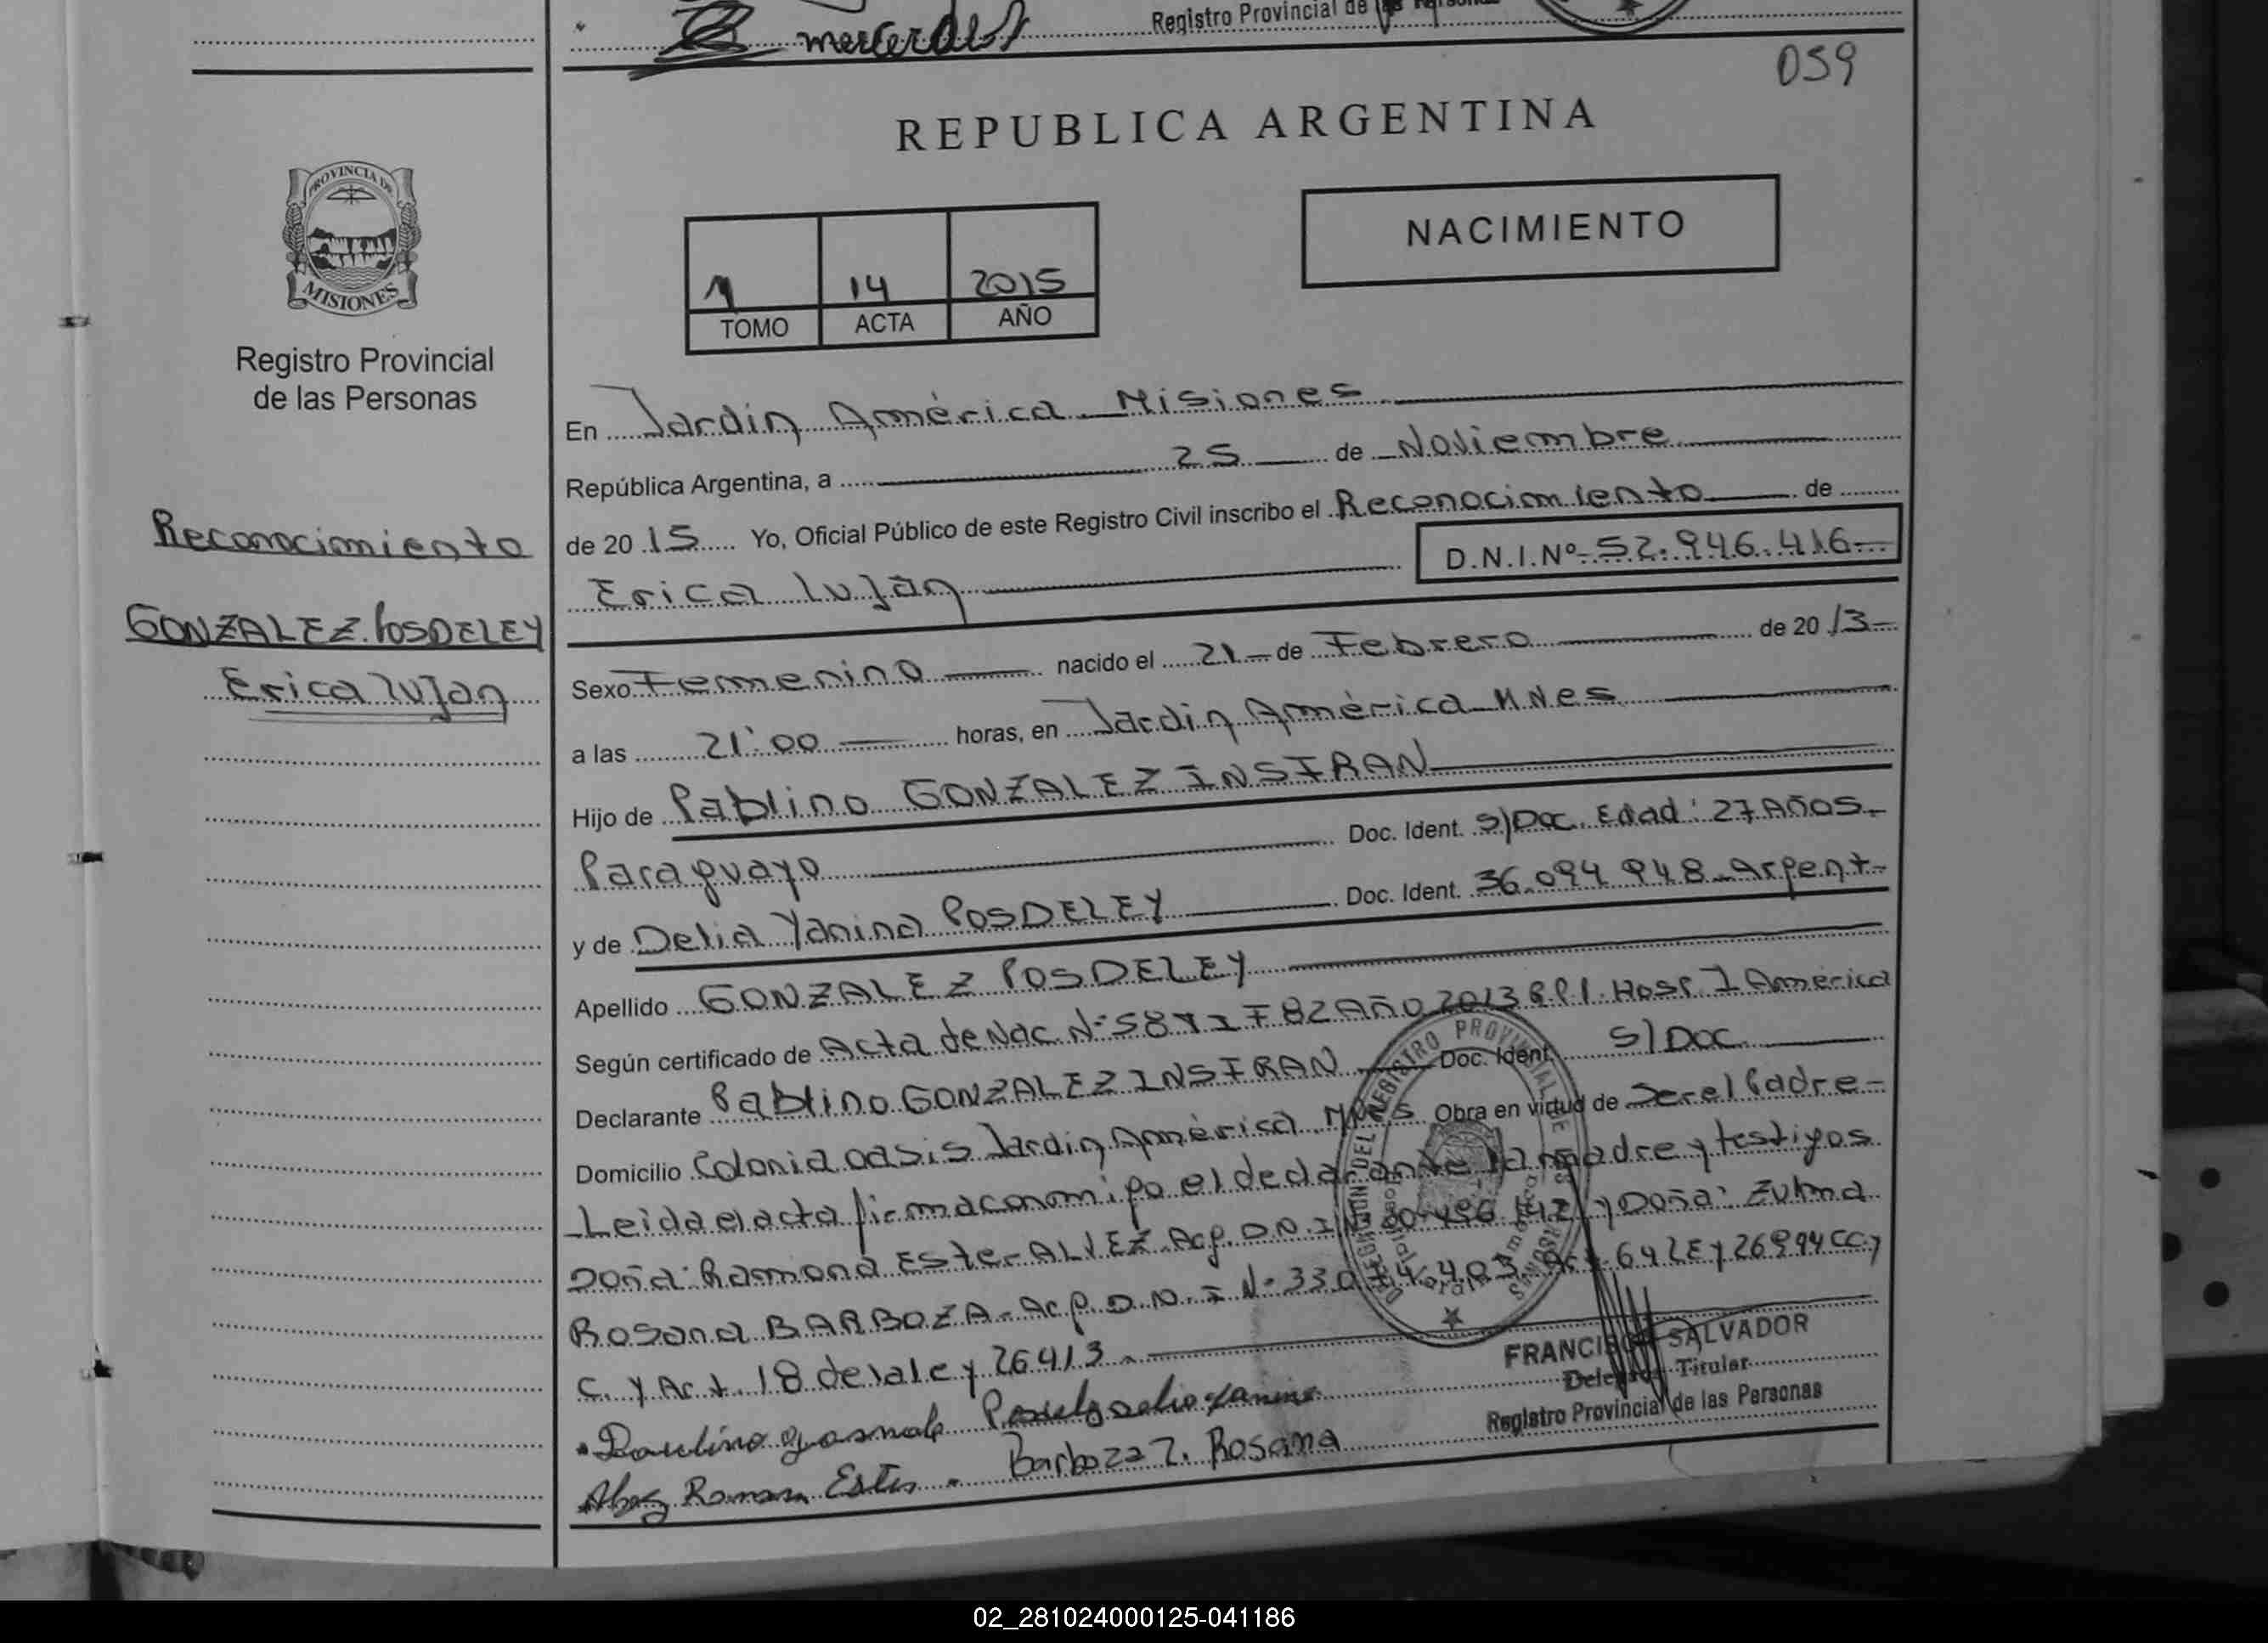 mercerdes
Registro Provincial de las Personas
059
REPUBLICA ARGENTINA
PROVINCIA DE
MISIONES
Registro Provincial
de las Personas
1 14 2015
TOMO ACTA AÑO
NACIMIENTO
Reconocimiento
GONZALEZ POSDELEY
Erica Luján
En Jardín América Misiones
República Argentina, a 25 de Noviembre
de 2015 Yo, Oficial Público de este Registro Civil inscribo el Reconocimiento de
Erica Luján D.N.I.Nº 52.946.416
Sexo Femenino nacido el 21 de Febrero de 2013
a las 21:00 horas, en Jardín América MNes
Hijo de Pablino GONZALEZ INSFRAN
Paraguayo Doc. Ident. S/Doc. Edad: 27 Años
y de Delia Yanina POSDELEY Doc. Ident. 36.094.948 Argent
Apellido GONZALEZ POSDELEY
Según certificado de Acta de Nac. Nº 58 T I F 82 Año 2013 Hosp. J América
Declarante Pablino GONZALEZ INSFRAN Doc. Ident. S/Doc
Domicilio Colonia oasis Jardín América Mnes Obra en virtud de Ser el Padre
Leida el acta firma conmigo el declarante la madre y testigos
Doña: Ramona Ester ALVEZ Arg. D.N.I Nº y Doña: Zulma
Rosana BARBOZA Arg. D.N.I Nº 33.014.403. Art. 64 LEY 26994 CC y
C. y Art. 18 de la ley 26413
DELEGACIÓN DEL REGISTRO PROVINCIAL DE LAS PERSONAS
Jardín América
FRANCISCO SALVADOR
Delegado Titular
Registro Provincial de las Personas
Alvez Ramona Ester
Barboza Z. Rosana
02_281024000125-041186